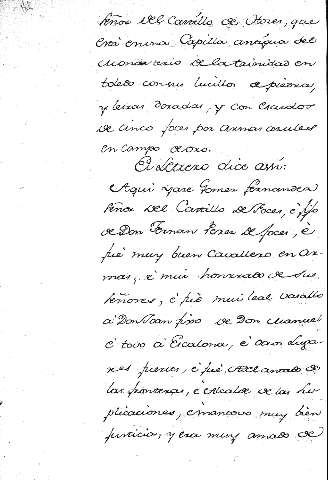 Señor del Castillo de Foces, que
está en una Capilla antigua del
Monasterio de la trinidad en
toledo con su lucillo de piedra,
y letras doradas, y con escudos
de cinco foces por armas azules
en campo de oro.
El Letrero dice assi:
Aqui yace Gomez Fernandez
Señor del Castillo de Foces, é fijo
de Don Fernan Perez de foces, é
fué muy buen Cavallero en ar-
mas, é mui honrrado de sus
señores, é fué mui leal vasallo
á Don Joan fijo de Don Manuel
é tovo á Escalona, é otros Luga-
res fuertes, é fué Adelantado de
las fronteras, é Alcalde de las su-
plicaciones, é mantovo muy bien
justicia, y era muy amado de